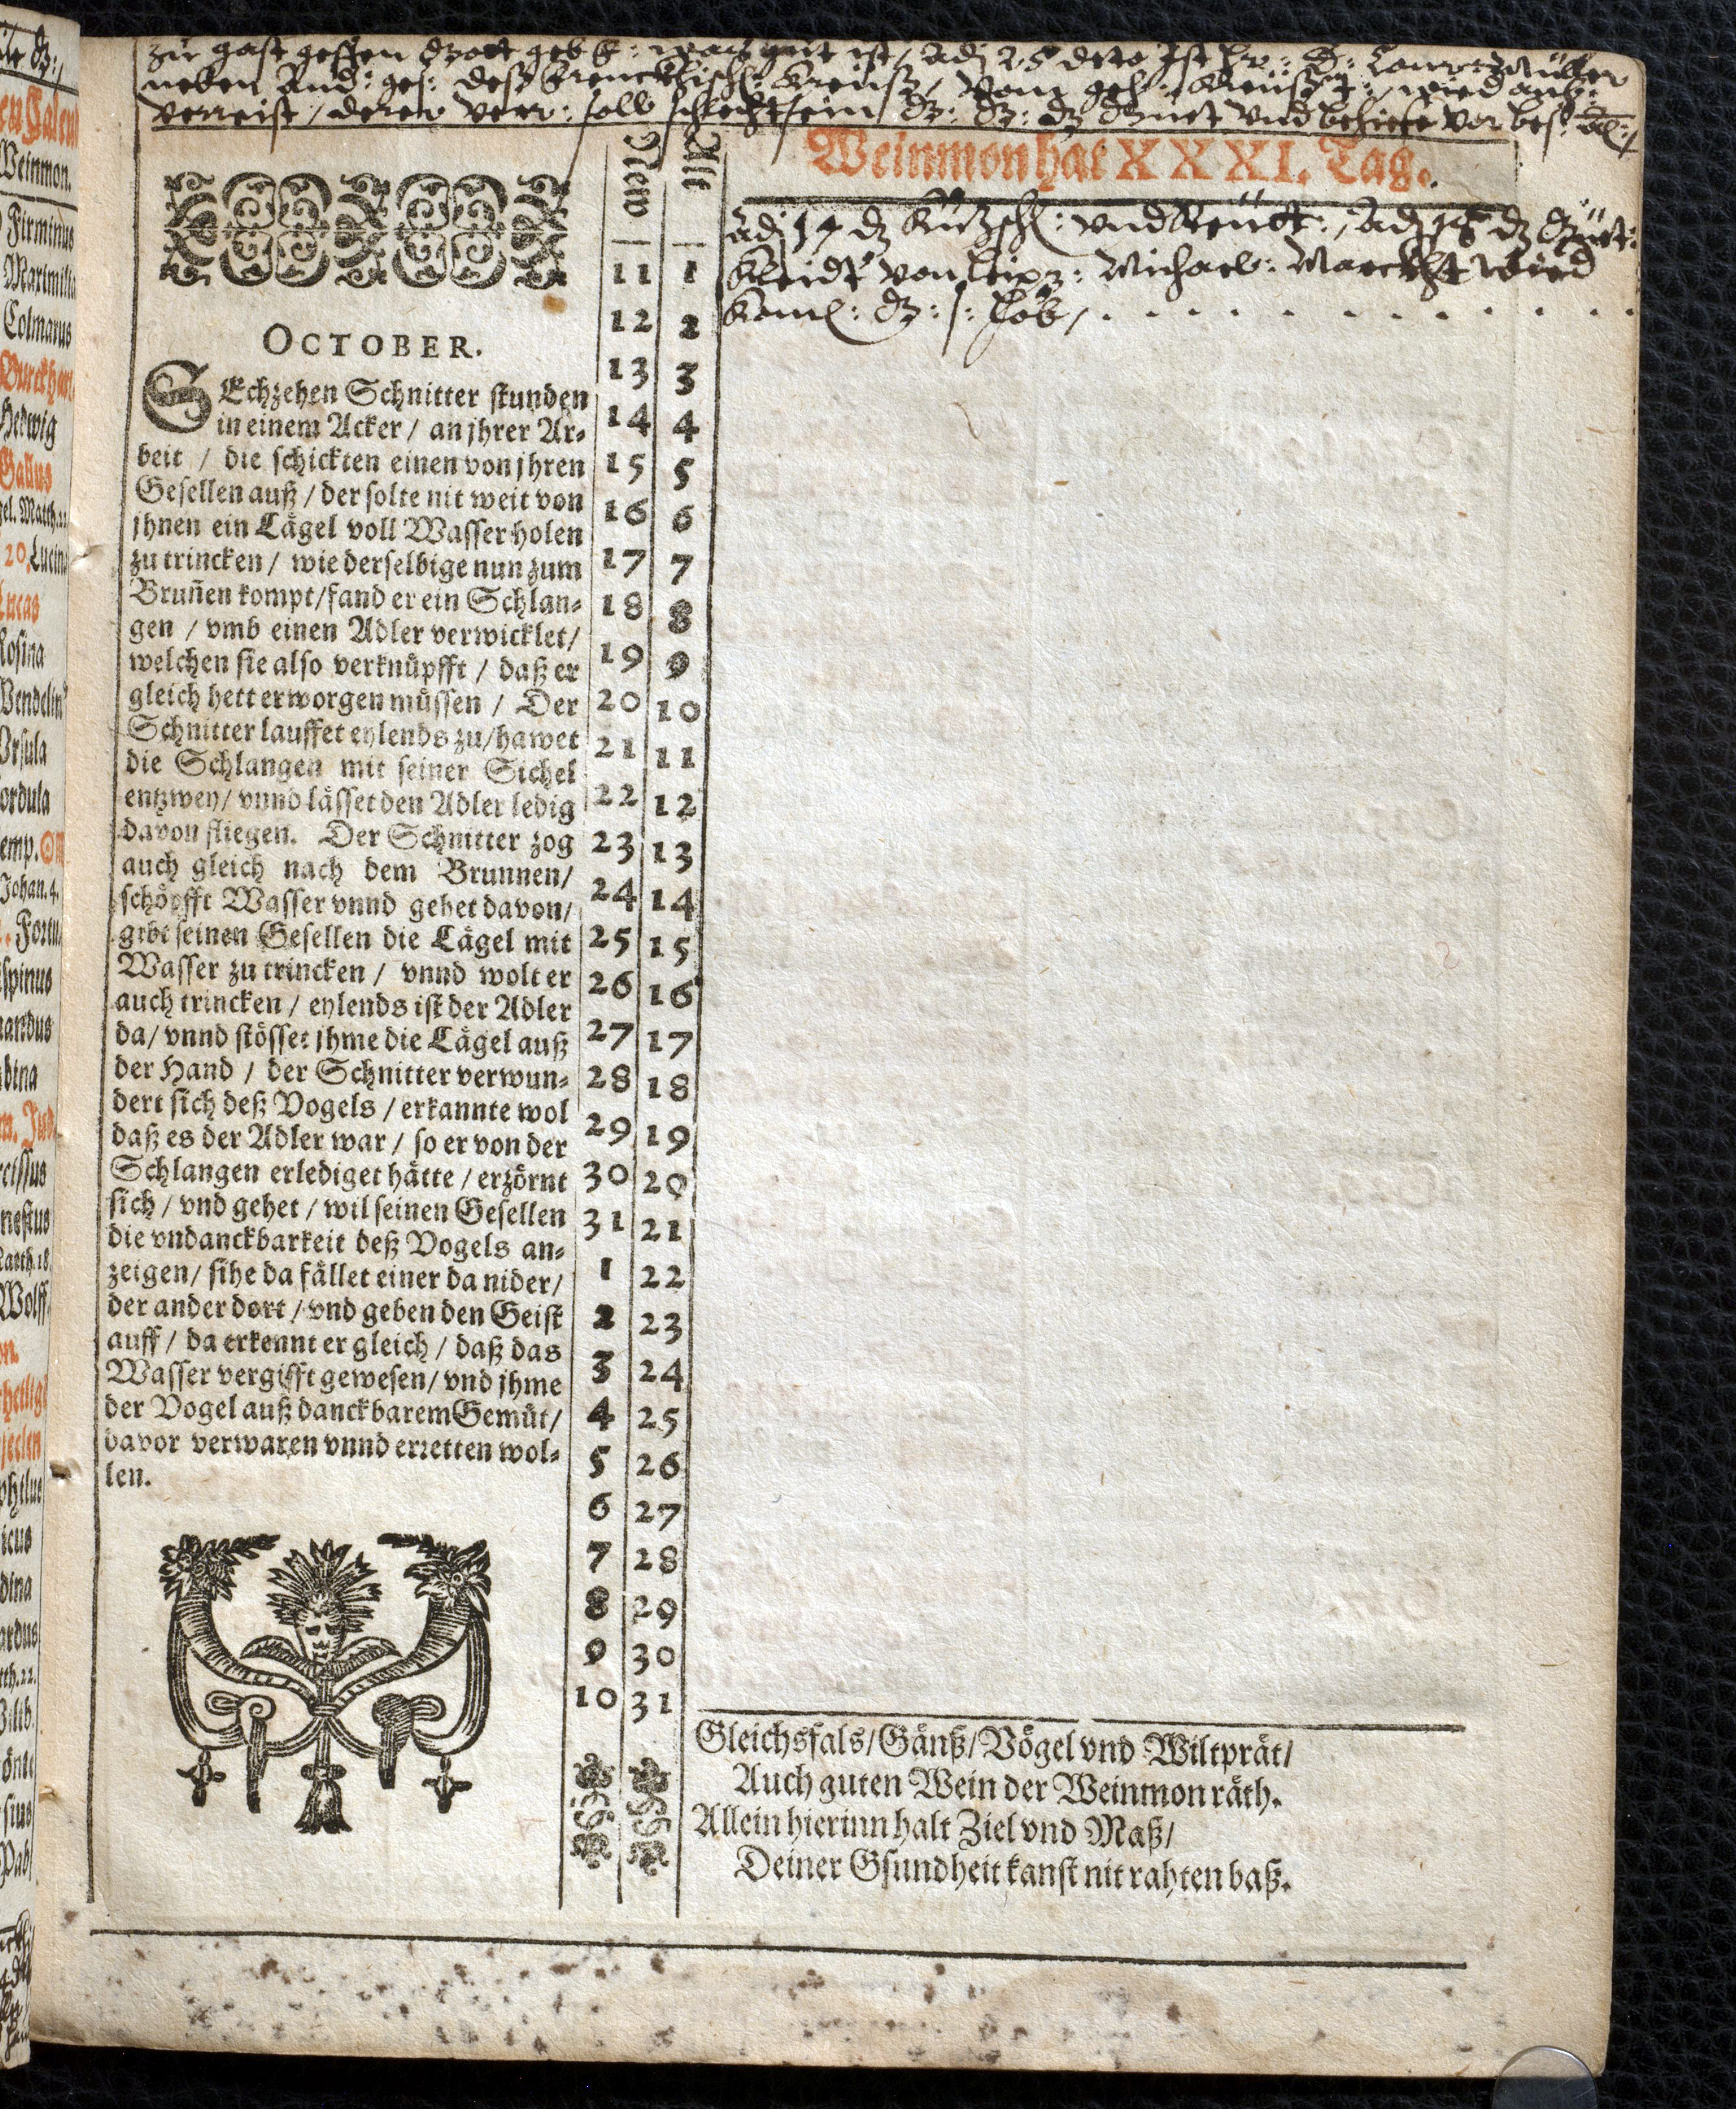 zu gast gessen
neben And: ges: deß
verreist / derer verr: soll schlecht sein /
New
Alt
Weinmon hat XXXI. Tag.
Adj 17 dz
Kleidt von Leipz: Michael: Marckht wied
OCTOBER.
SEchzehen Schnitter stunden
in einem Acker / an jhrer Ar-
beit / die schickten einen von jhren
Gesellen auß / der solte nit weit von
jhnen ein Lägel voll Wasser holen
zu trincken / wie derselbige nun zum
Bruñen kompt / fand er ein Schlan-
gen / vmb einen Adler verwicklet /
welchen sie also verknüpfft / daß er
gleich hett erworgen müssen / Der
Schnitter lauffet eylends zu / hawet
die Schlangen mit seiner Sichel
entzwey / vnnd lässet den Adler ledig
davon fliegen. Der Schnitter zog
auch gleich nach dem Brunnen /
schöpfft Wasser vnnd gehet davon /
gibt seinen Gesellen die Lägel mit
Wasser zu trincken / vnnd wolt er
auch trincken / eylends ist der Adler
da / vnnd stösset jhme die Lägel auß
der Hand / der Schnitter verwun-
dert sich deß Vogels / erkannte wol
daß es der Adler war / so er von der
Schlangen erlediget hätte / erzörnt
sich / vnd gehet / wil seinen Gesellen
die vndanckbarkeit deß Vogels an-
zeigen / sihe da fället einer da nider /
der ander dort / vnd geben den Geist
auff / da erkennt er gleich / daß das
Wasser vergifft gewesen / vnd jhme
der Vogel auß danckbarem Gemüt /
davor verwaren vnnd erretten wol-
len.
11 1
12 2
13 3
14 4
15 5
16 6
17 7
18 8
19 9
20 10
21 11
22 12
23 13
24 14
25 15
26 16
27 17
28 18
29 19
30 20
31 21
1 22
2 23
3 24
4 25
5 26
6 27
7 28
8 29
9 30
10 31
Gleichsfals / Gänß / Vögel vnd Wiltprät /
Auch guten Wein der Weinmon räth.
Allein hierinn halt Ziel vnd Maß /
Deiner Gsundheit kanst nit rahten baß.